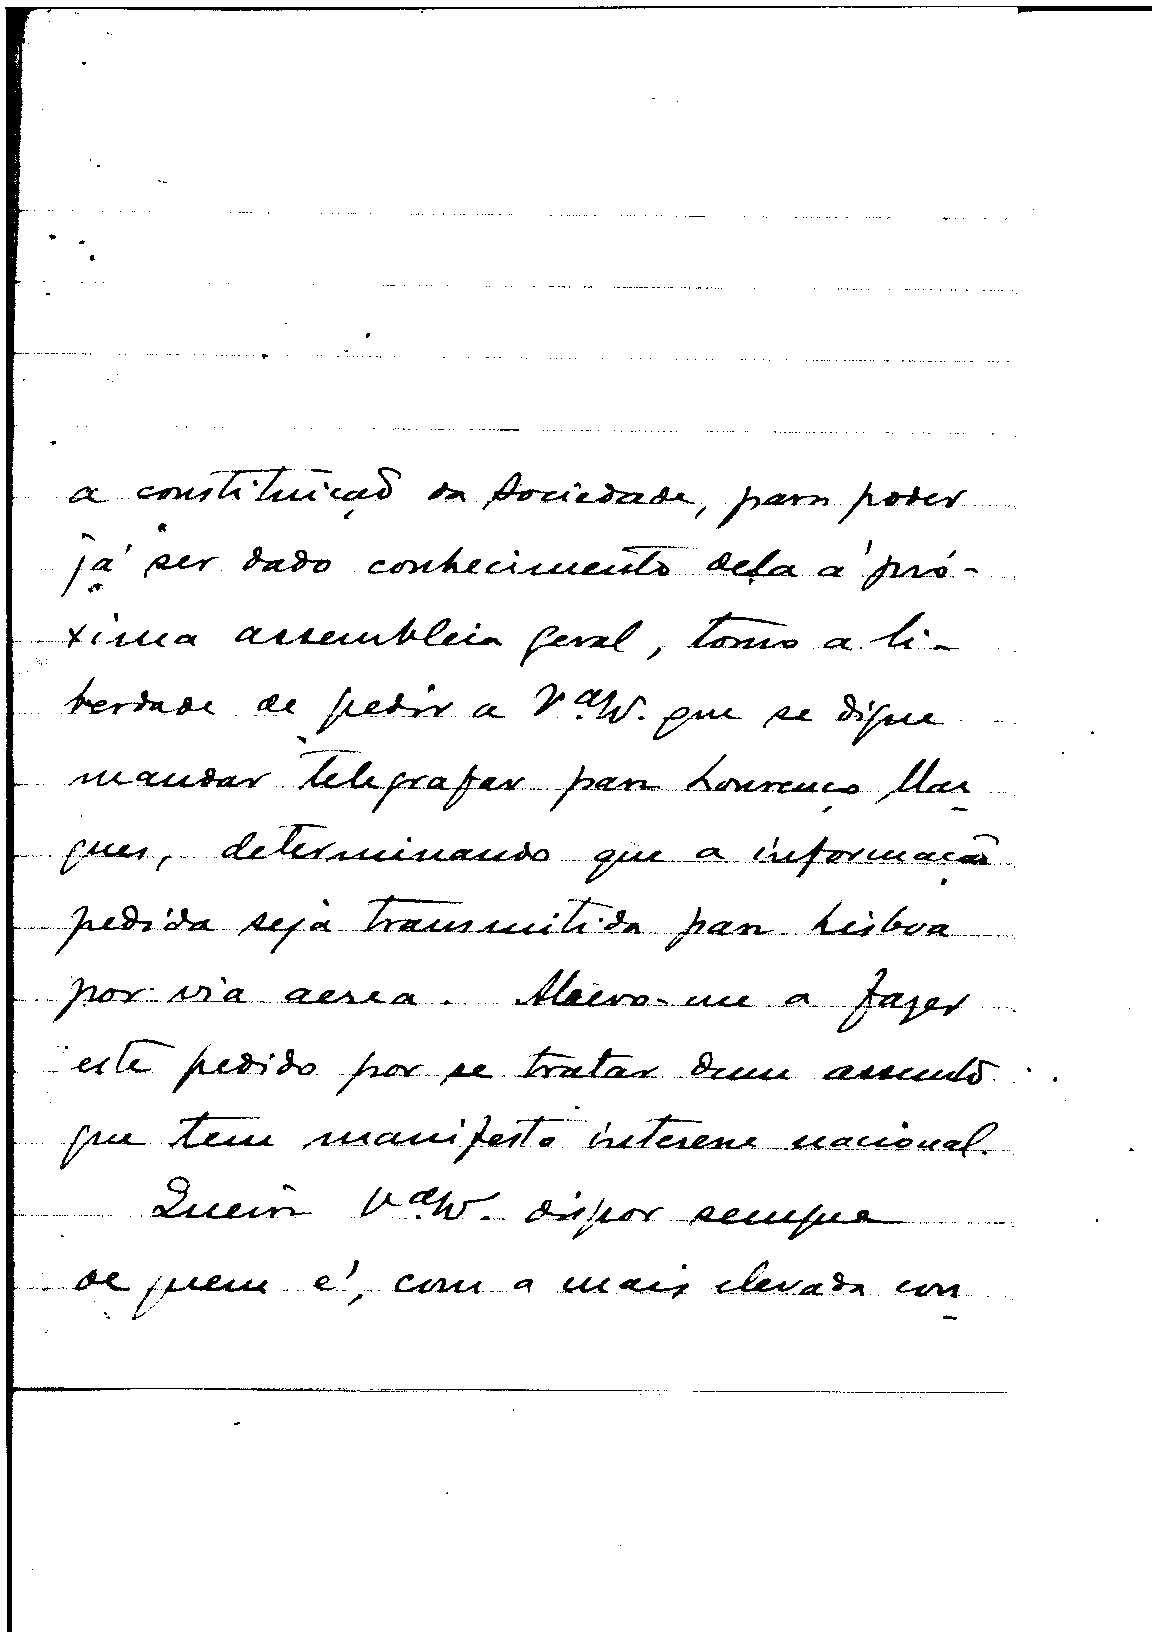 a constituição da Sociedade, para poder
já ser dado conhecimento dela á pró-
xima assembleia geral, tomo a li-
berdade de pedir a V.ª que se digne
mandar telegrafar para Lourenço Mar-
ques, determinando que a informação
pedida seja transmitida para Lisboa
por via aerea. Atrevo-me a fazer
este pedido por se tratar dum assunto
que tem manifesto interesse nacional.
Queira V.ª dispor sempre
de quem é, com a mais elevada con-